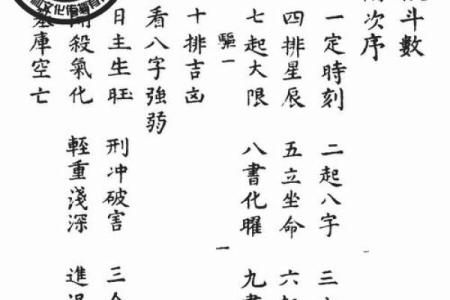 斗數
次序
一定時刻 二起八字 三
四排星辰 五立坐命 六
七起大限 八書化曜 九書
驅一 一
十排吉凶
看八字強弱
日主生旺 刑冲破害 三
殺氣化 輕重淺深 進
庫空亡
文化傳播有